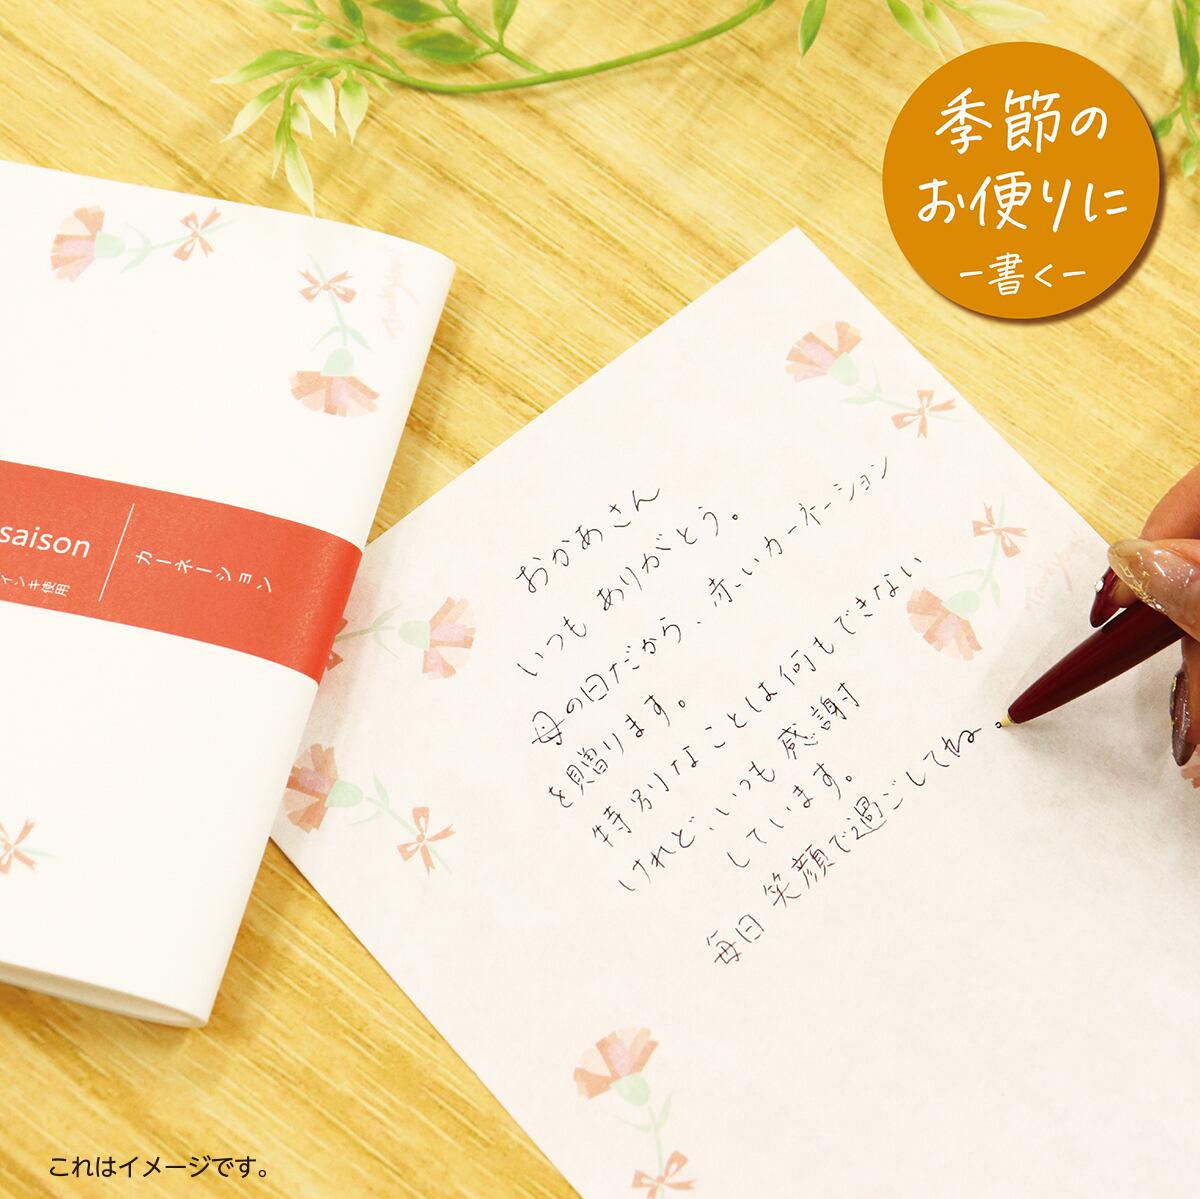 季節の
お便りに
ー書くー
saison
インキ使用
カーネーション
おかあさん
いつもありがとう。
母の日だから、赤いカーネーション
を贈ります。
特別なことは何もできない
けれど、いつも感謝
しています。
毎日笑顔で過ごしてね。
これはイメージです。